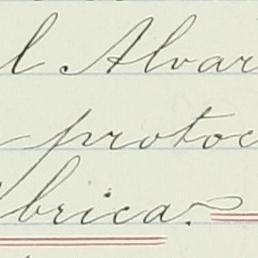 l Alvar
protoc
brica.